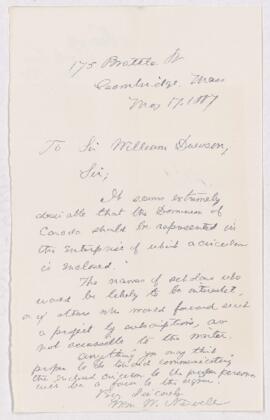 175 Brattle St
Cambridge, Mass
May 17, 1887
To Sir William Dawson,
Sir,
It seems extremely
desirable that the Dominion of
Canada should be represented in
the enterprise of which a circular
is enclosed.
The names of scholars who
would be likely to be interested,
or of others who would forward such
a project by subscription, are
not accessible to the writer.
Anything you may think
proper to do toward communicating
the enclosed circular to the proper persons
will be a favor to the signer.
Very sincerely
Wm. W. Newell